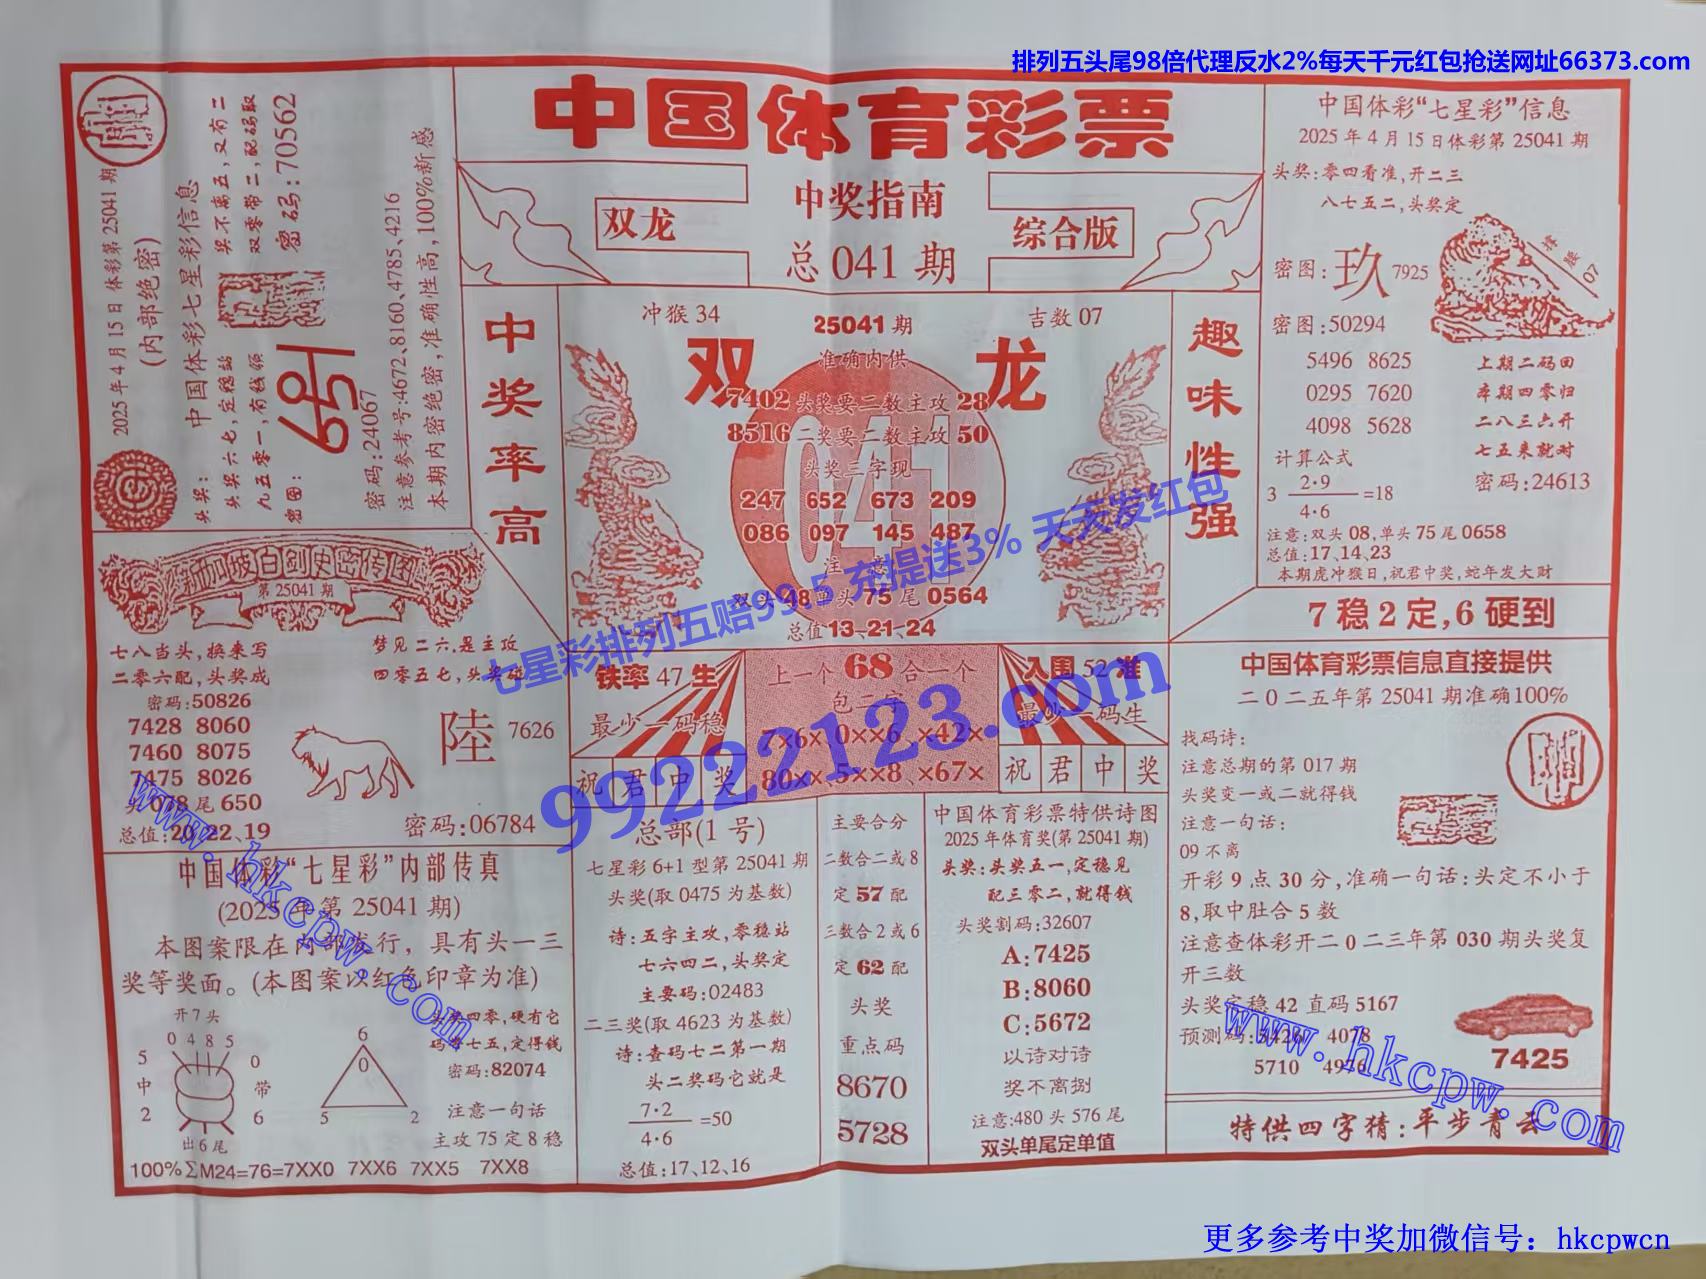 排列五头尾98倍代理反水2%每天千元红包抢送网址66373.com
中国体育彩票
双龙
中奖指南
综合版
总 041 期
2025年4月15日 体彩第25041期
(内部绝密)
中国体彩七星彩信息
头奖:
奖不离五,又有二
双零带二,配码取
密码:70562
头奖六七,定稳站
九五零一,有钱领
密图:
密码:24067
注意参考号:4672、8160、4785、4216
本期内密绝密,准确性高,100%新感
中奖率高
冲猴 34
25041 期
吉数 07
双龙
准确内供
7402 头奖要二数主攻 28
8516 二奖要二数主攻 50
头奖三字现
247 652 673 209
086 097 145 487
注 意
双头 48 单头 75 尾 0564
总值 13、21、24
趣味性强
中国体彩“七星彩”信息
2025年4月15日体彩第25041期
头奖:零四看准,开二三
八七五二,头奖定
密图:玖 7925
密图:50294
5496 8625
0295 7620
4098 5628
上期二码回
本期四零归
二八三六开
七五来就对
密码:24613
计算公式
3 2·9/4·6 =18
注意:双头 08,单头 75 尾 0658
总值:17、14、23
本期虎冲猴日,祝君中奖,蛇年发大财
7 稳 2 定,6 硬到
新加坡白剑史密传图
第 25041 期
七八当头,换来写
二零六配,头奖成
梦见二六,是主攻
四零五七,头奖碰
密码:50826
7428 8060
7460 8075
7475 8026
头 078 尾 650
总值:20、22、19
陸 7626
密码:06784
铁率 47 生
最少一码稳
祝君中奖
上一个 68 合一个
包二字
7×6× 0××6 ×42×
80×× 5××8 ×67×
入围 52 准
最少一码生
祝君中奖
中国体彩“七星彩”内部传真
(2025年第25041期)
本图案限在内部发行，具有头一三
奖等奖面。(本图案以红色印章为准)
开7头
0 4 8 5
5 中 2
0 带 6
出6尾
6
0
5 2
头奖四零,硬有它
码带七五,定得钱
密码:82074
注意一句话
主攻 75 定 8 稳
100%∑M24=76=7XX0 7XX6 7XX5 7XX8
总部(1号)
七星彩 6+1 型第 25041 期
头奖(取 0475 为基数)
诗:五字主攻,零稳站
七六四二,头奖定
主要码:02483
二三奖(取 4623 为基数)
诗:查码七二第一期
头二奖码它就是
7·2/4·6 =50
总值:17、12、16
主要合分
二数合二或8
定 57 配
三数合2或6
定 62 配
头奖
重点码
8670
5728
中国体育彩票特供诗图
2025年体育奖(第25041期)
头奖:头奖五一,定稳见
配三零二,就得钱
头奖割码:32607
A:7425
B:8060
C:5672
以诗对诗
奖不离捌
注意:480 头 576 尾
双头单尾定单值
中国体育彩票信息直接提供
二0二五年第25041期准确100%
找码诗:
注意总期的第 017 期
头奖变一或二就得钱
注意一句话:
09 不离
开彩9点30分,准确一句话:头定不小于
8,取中肚合5数
注意查体彩开二0二三年第030期头奖复
开三数
头奖定稳 42 直码 5167
预测码:5426 4078
5710 4976
7425
特供四字猜:平步青云
七星彩排列五赔99.5 充提送3% 天天发红包
99222123.com
www.hkcpw.com
www.hkcpw.com
更多参考中奖加微信号：hkcpwcn